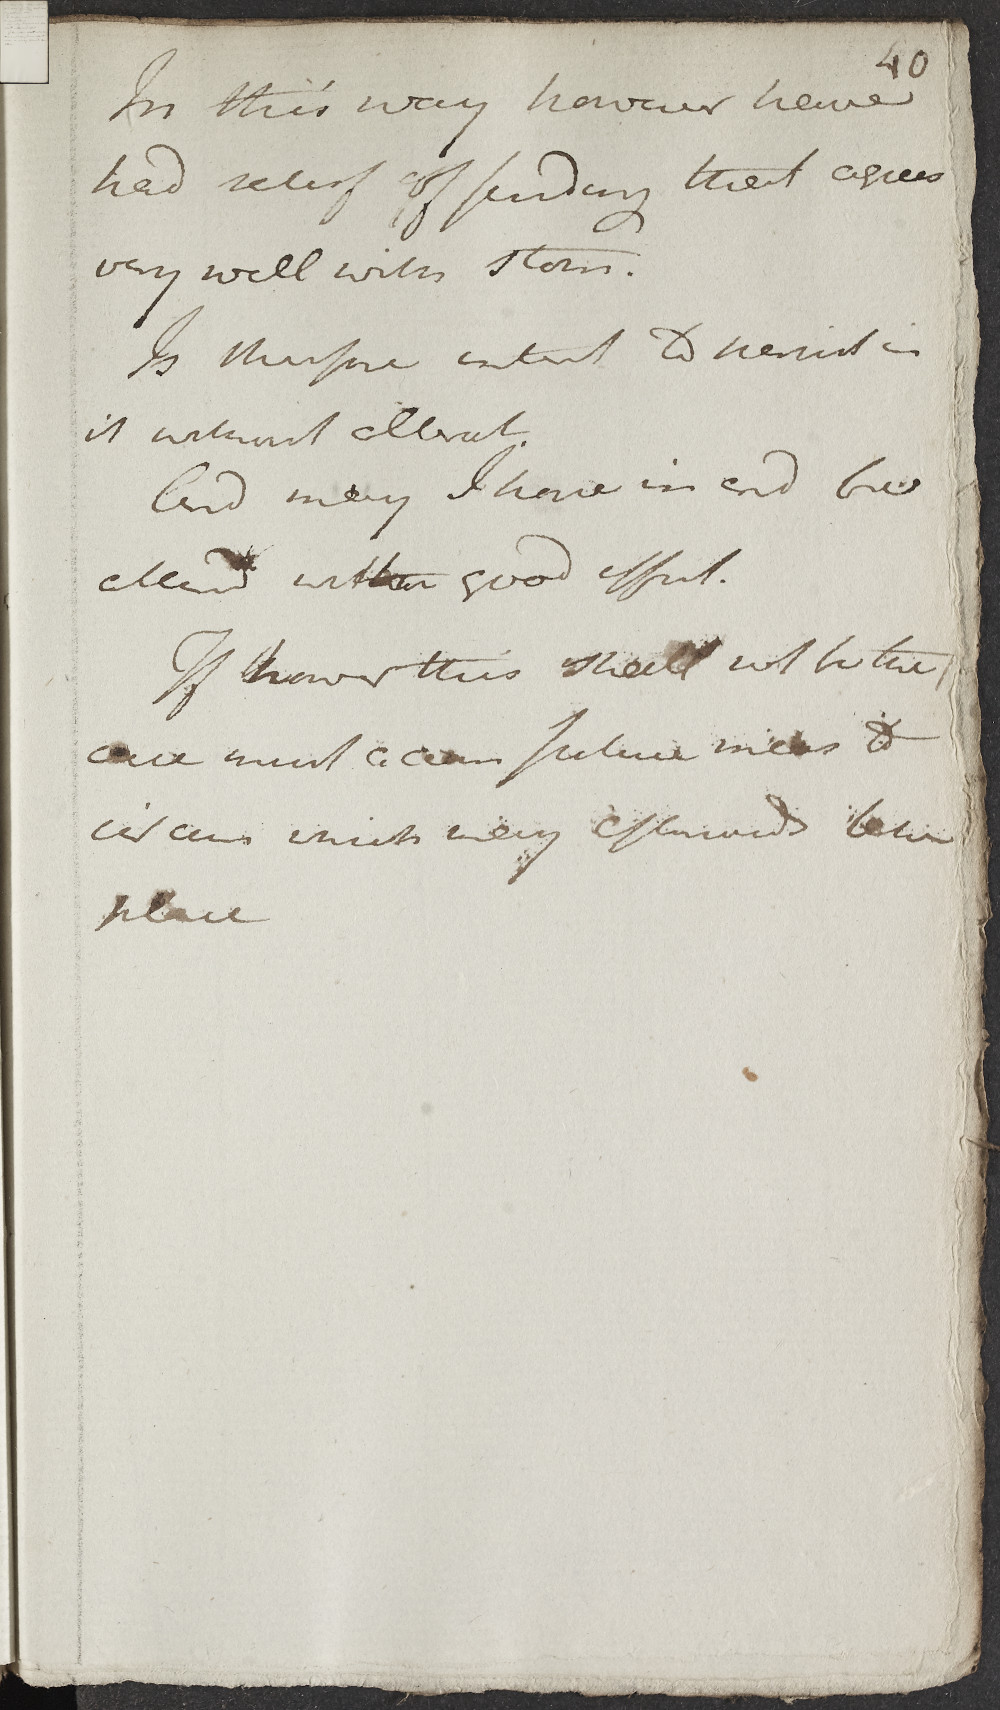 40
In this way however have
had relief & finding that agrees
very well with stom.
Is therfore intent to persist in
it without alterat.
And may I hope in end be
attend with good effect.
If howevr this shall not be the
case must accom future meas to
circums which may afterwards take
place